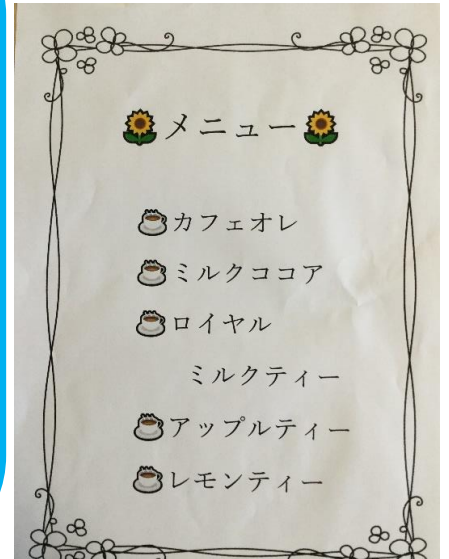 メニュー
カフェオレ
ミルクココア
ロイヤル
ミルクティー
アップルティー
レモンティー